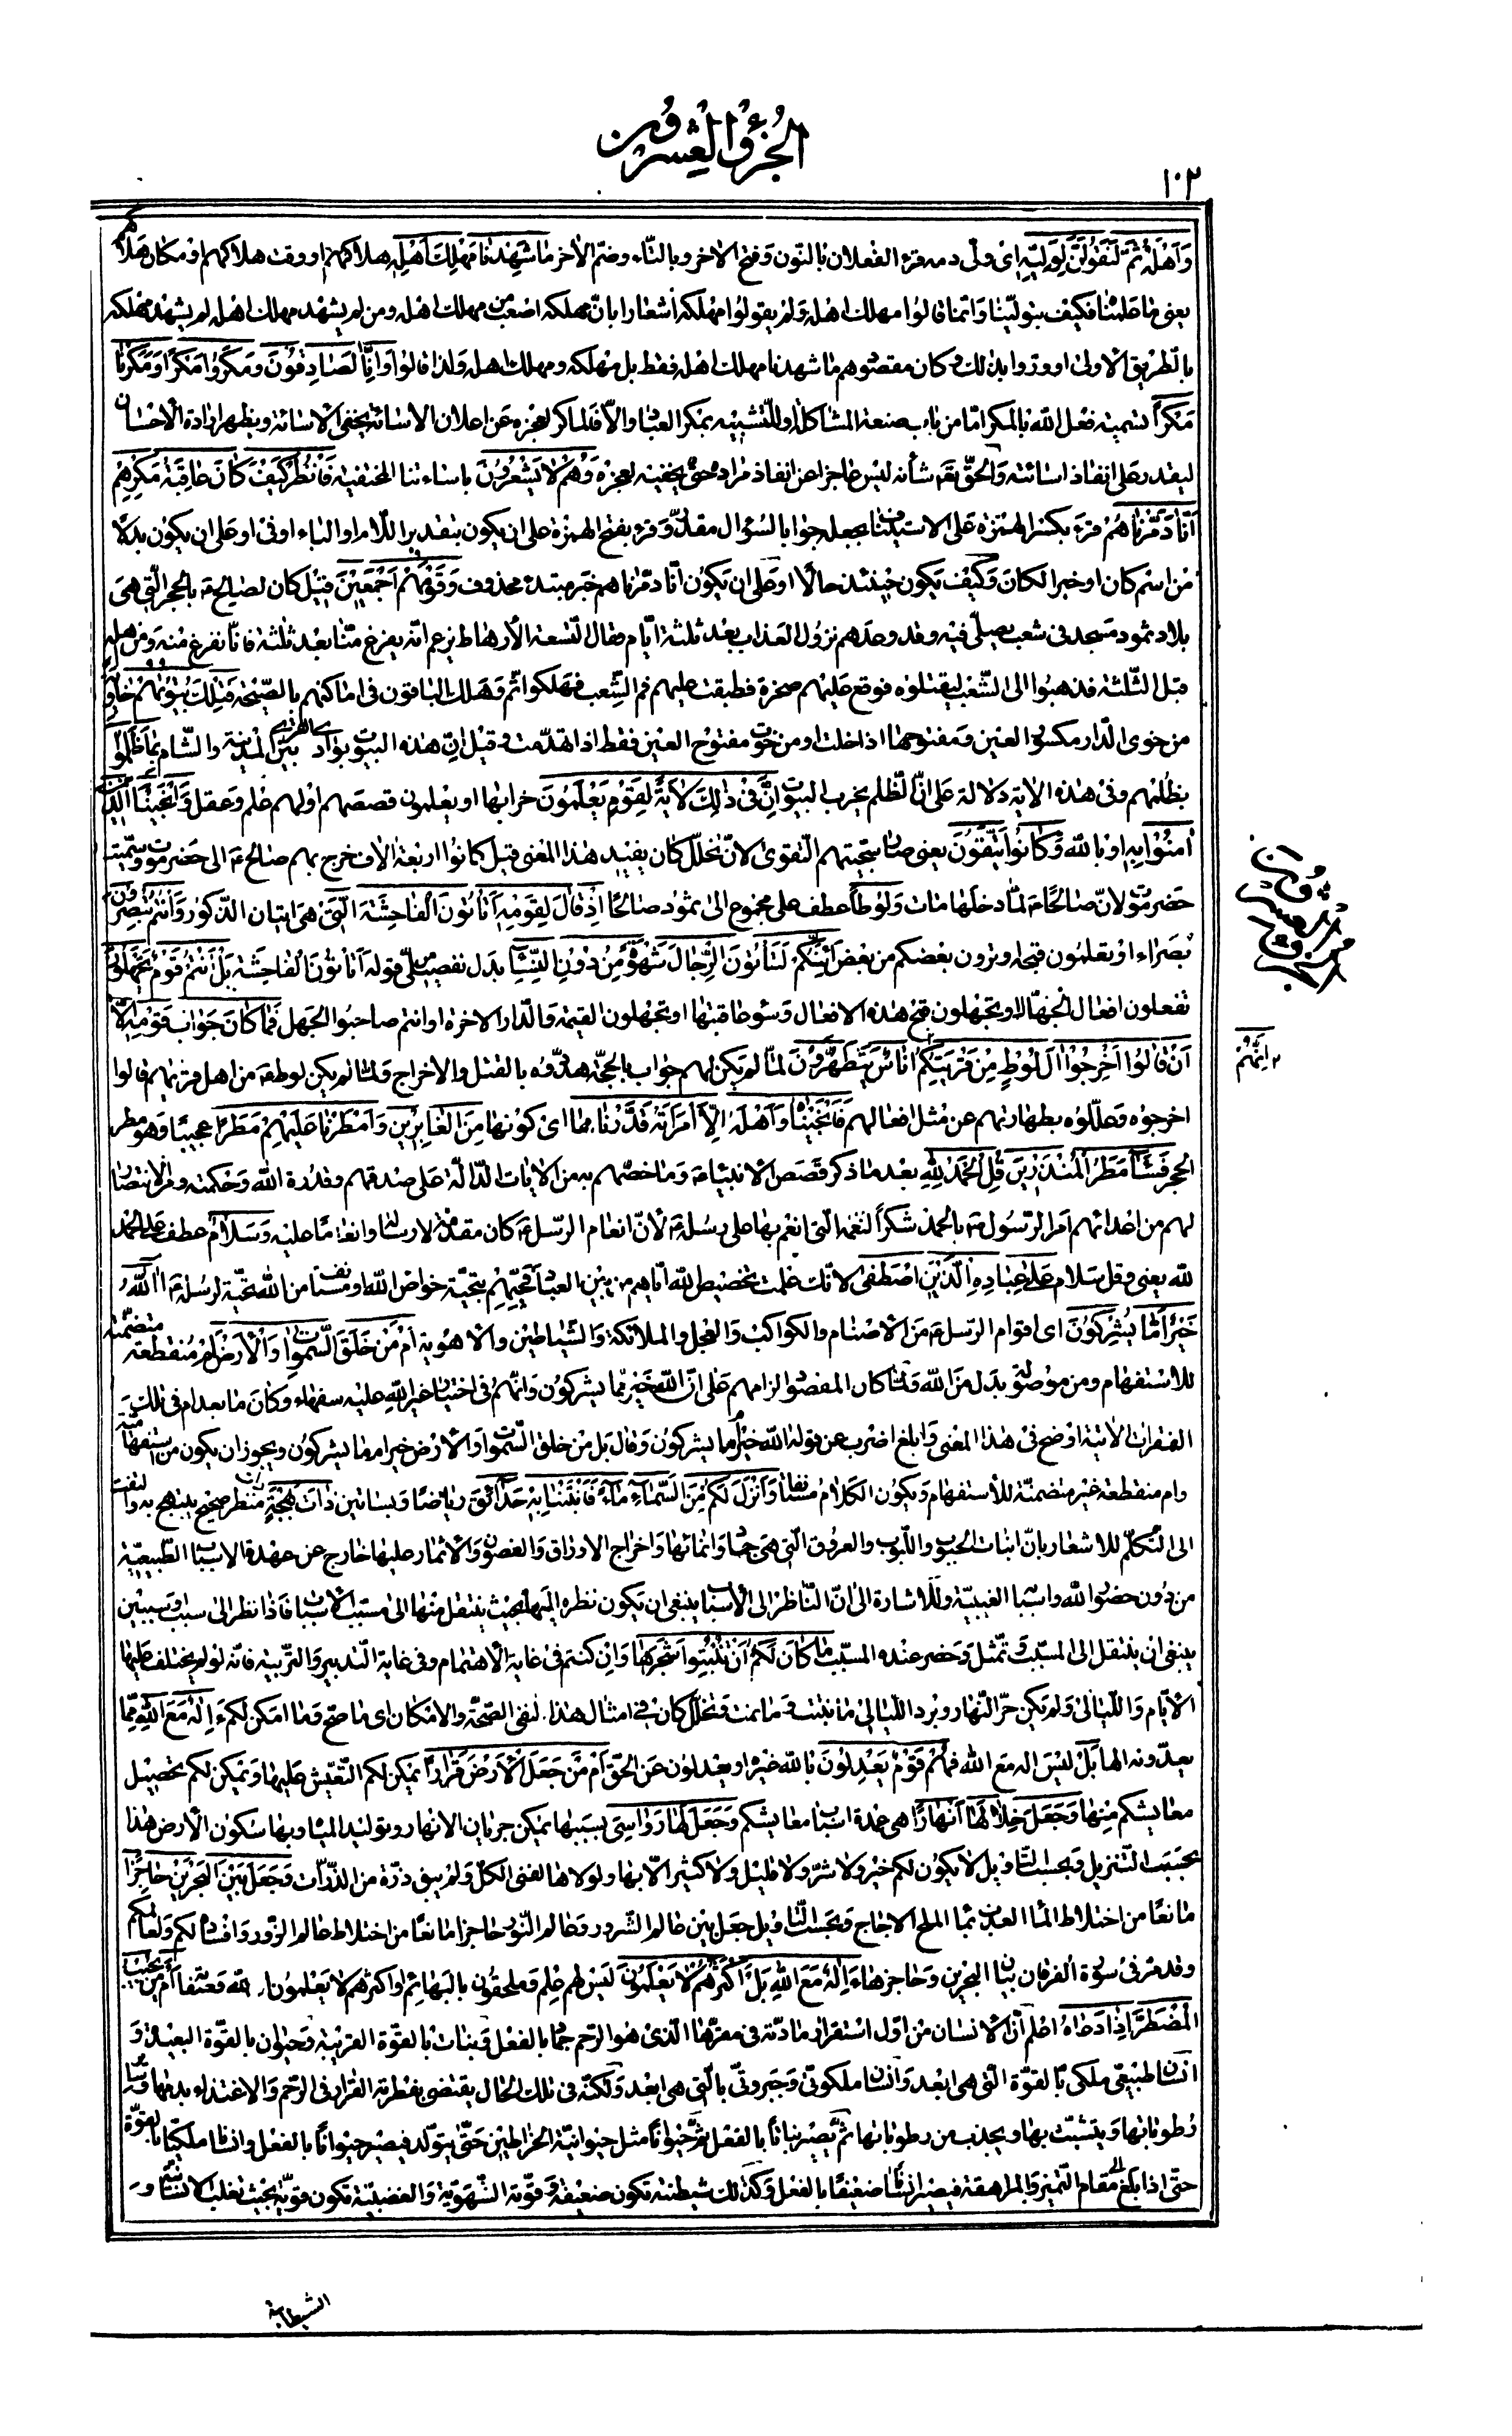 الجزؤ العشرون
١٠٢
وَاَهْلَهُ ثُمَّ لَنَقُولَنَّ لِوَلِيِّهِ اى ولىّ دمه قرء الفعلان بالنّون وفتح الاخر وبالتّاء وضمّ الاخر ما شَهِدْنا مَهْلِكَ اَهْلِهِ هلاكهم او وقت هلاكهم او مكان هلاكهم
يعنى ما علمنا فكيف بتوليتنا وانّما قالوا مهلك اهله ولم يقولوا مهلكه اشعارا بانّ مهلكه اصعب من مهلك اهله ومن لم يشهد مهلك اهله لم يشهد مهلكه
بالطّريق الاولى او ورّوا بذلك وكان مقصودهم ما شهدنا مهلك اهله فقط بل مهلكه ومهلك اهله ولذا قالوا وَاِنّا لَصادِقُونَ وَمَكَرُوا مَكْراً وَمَكَرْنا
مَكْراً تسمية فعل الله بالمكر امّا من باب صنعة المشاكلة او للتّشبيه بمكر العباد والّا فالماكر لعجزه عن اعلان الاسائة يخفى الاسائة ويظهر ارادة الاحسان
ليقدر على انفاذ اسائته والحقّ تعالى شأنه ليس عاجزا عن انفاذ مراده حتّى يخفيه لعجزه وَهُمْ لا يَشْعُرُونَ باساءتنا المختفية فَانْظُرْ كَيْفَ كانَ عاقِبَةُ مَكْرِهِمْ
اَنّا دَمَّرْناهُمْ قرء بكسر الهمزة على الاستيناف بجعله جوابا لسؤال مقدّر وقرء بفتح الهمزة على ان يكون بتقدير اللّام او الباء او فى او على ان يكون بدلا
من اسم كان او خبرا لكان وكيف يكون حينئذ حالا او على ان يكون انّا دمّرناهم خبر مبتدء محذوف وَقَوْمَهُمْ اَجْمَعِينَ قيل كان لصالح ع بالحجر الّتى هى
بلاد ثمود مسجد فى شعب يصلّى فيه وقد وعدهم نزول العذاب بعد ثلثة ايّام فقال التّسعة الارهاط يزعم انّه يفرغ منّا بعد ثلثة فانّا نفرغ منه ومن اهله
قبل الثّلثة فذهبوا الى الشّعب ليقتلوه فوقع عليهم صخرة فطبقت عليهم فم الشّعب فهلكوا ثمّ وهلك الباقون فى اماكنهم بالصّيحة فَتِلْكَ بُيُوتُهُمْ خاوِيَةً
من خوى الدّار مكسور العين ومفتوحها اذا خلت او من خوت مفتوح العين فقط اذا تهدّمت وقيل انّ هذه البيوت بوادى القرى بين المدينة والشّام بِما ظَلَمُوا
بظلمهم وفى هذه الاية دلالة على انّ الظّلم يخرب البيوت اِنَّ فِى ذلِكَ لَآيَةً لِقَوْمٍ يَعْلَمُونَ خرابها او يعلمون قصصهم او لهم علم وعقل وَاَنْجَيْنَا الَّذِينَ
آمَنُوا به او بالله وَكانُوا يَتَّقُونَ يعنى صار سجيّتهم التّقوى لانّ تخلّل كان يفيد هذا المعنى قيل كانوا اربعة الاف خرج بهم صالح ع الى حضرموت وسمّيت
حضرموت لانّ صالحا ع لمّا دخلها مات وَلُوطاً عطف على مجموع الى ثمود صالحا اِذْ قالَ لِقَوْمِهِ اَتَأْتُونَ الْفاحِشَةَ الّتى هى اتيان الذّكور وَاَنْتُمْ تُبْصِرُونَ
بصراء او تعلمون قبحها او ترون بعضكم من بعض اَئِنَّكُمْ لَتَأْتُونَ الرِّجالَ شَهْوَةً مِنْ دُونِ النِّساءِ بدل تفصيلىّ عن قوله اتاتون الفاحشة بَلْ اَنْتُمْ قَوْمٌ تَجْهَلُونَ
تفعلون افعال الجهّال او تجهلون قبح هذه الافعال وسوء عاقبتها او تجهلون القيمة والدّار الاخرة او انتم صاحبوا الجهل فَما كانَ جَوابَ قَوْمِهِ اِلّا
اَنْ قالُوا اَخْرِجُوا آلَ لُوطٍ مِنْ قَرْيَتِكُمْ اُناسٌ يَتَطَهَّرُونَ لمّا لم يكن لهم جواب بالحجّة هدّدوه بالقتل والاخراج ولمّا لم يكن لوط ع من اهل قريتهم قالوا
اخرجوه وعلّلوه بطهارتهم عن مثل افعالهم فَاَنْجَيْناهُ وَاَهْلَهُ اِلّا امْرَاَتَهُ قَدَّرْناها اى كونها مِنَ الْغابِرِينَ وَاَمْطَرْنا عَلَيْهِمْ مَطَراً عجيبا وهو مطر
الحجر فَساءَ مَطَرُ الْمُنْذَرِينَ قُلِ الْحَمْدُ لِلّهِ بعد ما ذكر قصص الانبياء ع وما خصّهم به من الايات الدّالّة على صدقهم وقدرة الله وحكمته والانتصار
لهم من اعدائهم امر الرّسول ص بالحمد شكرا لنعمه الّتى انعم بها على رسله ع لانّ انعام الرّسل ع كان مقدّمة لارساله وانعاما عليه وَسَلامٌ عطف على الحمد
لله يعنى وقل سلام عَلى عِبادِهِ الَّذِينَ اصْطَفى لانّك علمت تخصيص الله ايّاهم من بين العباد فحيّهم بتحيّة خواصّ الله او مستأنف من الله تحيّة لرسله ع آللّهُ
خَيْرٌ اَمّا يُشْرِكُونَ اى اقوام الرّسل ع من الاصنام والكواكب والعجل والملائكة والشّياطين والاهوية اَمْ مَنْ خَلَقَ السَّمواتِ وَالْاَرْضَ ام منقطعة متضمّنة
للاستفهام ومن موصولة بدل من الله ولمّا كان المقصود الزامهم على انّ الله خير ممّا يشركون وانّهم فى اختيار غير الله عليه سفهاء وكان ما بعد ام فى تلك
الفقرات الاتية اوضح فى هذا المعنى وابلغ اضرب عن قوله الله خير امّا يشركون وقال بل من خلق السّموات والارض خير ام ما يشركون ويجوز ان يكون من استفهاميّة
وام منقطعة غير متضمّنة للاستفهام ويكون الكلام مستأنفا وَاَنْزَلَ لَكُمْ مِنَ السَّماءِ ماءً فَاَنْبَتْنا بِهِ حَدائِقَ رياضا وبساتين ذاتَ بَهْجَةٍ منظر صحيح يبتهج به والتفت
الى التّكلّم للاشعار بانّ انبات الحبوب واللّبوب والعروق الّتى هى جماد وانمائها واخراج الاوراق والغصون والاثمار عليها خارج عن عهدة الاسباب الطّبيعيّة
من دون حضور الله واسباب الغيبيّة وللاشارة الى انّ النّاظر الى الاسباب ينبغى ان يكون نظره اليها بحيث ينتقل منها الى مسبّب الاسباب فاذا نظر الى سبب وسببين
ينبغى ان ينتقل الى المسبّب وتمثّل وحضر عنده المسبّب ما كانَ لَكُمْ اَنْ تُنْبِتُوا شَجَرَها وان كنتم فى غاية الاهتمام وفى غاية التّدبير والتّربية فانّه لو لم يختلف عليها
الايّام واللّيالى ولم يكن حرّ النّهار وبرد اللّيالى ما نبتت وما نمت وتخلّل كان فى امثال هذا لنفى الصّحّة والامكان اى ما صحّ وما امكن لكم ءَاِلهٌ مَعَ اللّهِ ممّا
يعدّونه الها بَلْ ليس اله مع الله فهم قَوْمٌ يَعْدِلُونَ بالله غيره او يعدلون عن الحقّ اَمْ مَنْ جَعَلَ الْاَرْضَ قَراراً يمكن لكم التّعيّش عليها ويمكن لكم تحصيل
معايشكم منها وَجَعَلَ خِلالَها اَنْهاراً هى عمدة اسباب معايشكم وَجَعَلَ لَها رَواسِىَ بسببها يمكن جريان الانهار وتوليد المياه وبها سكون الارض هذا
بحسب التّنزيل وبحسب التّاويل لا يكون لكم خير ولا شرّ ولا قليل ولا كثير الّا بها ولولاها لفنى الكلّ ولم يبق ذرّة من الذّرّات وَجَعَلَ بَيْنَ الْبَحْرَيْنِ حاجِزاً
مانعا من اختلاط الماء العذب بماء الملح الاجاج وبحسب التّاويل جعل بين عالم الشّرور وعالم النّور حاجزا مانعا من اختلاط عالم الزّور وافساده لكم ولعالمكم
وقد مرّ فى سورة الفرقان بيان البحرين وحاجزهما ءَاِلهٌ مَعَ اللّهِ بَلْ اَكْثَرُهُمْ لا يَعْلَمُونَ ليس لهم علم وملحقون بالبهائم او اكثرهم لا يعلمون اَمَّنْ يُجِيبُ
الْمُضْطَرَّ اِذا دَعاهُ اعلم انّ الانسان من اوّل استقرار مادّته فى مقرّها الّذى هو الرّحم جماد بالفعل ونبات بالقوّة القريبة وحيوان بالقوّة البعيدة و
انسان طبيعىّ ملكىّ بالقوّة الّتى هى ابعد وانسان ملكوتىّ وجبروتىّ بالّتى هى ابعد ولكنّه فى تلك الحال يقتضى بفطرته القرار فى الرّحم والاغتذاء بدمها و
رطوباتها ويتشبّث بها ويجذب من رطوباتها ثمّ يصير نباتا بالفعل ثمّ حيوانا مثل حيوانيّة الخراطين حتّى يتولّد فيصير حيوانا بالفعل وانسانا ملكيّا بالقوّة
حتّى اذا بلغ مقام التّميز والمراهقة فيصير انسانا ضعيفا بالفعل وكذلك شيطنته تكون ضعيفة وقوّته الشّهويّة والغضبيّة تكون قويّة بحيث تغلب الانسانيّة و
الشيطانية